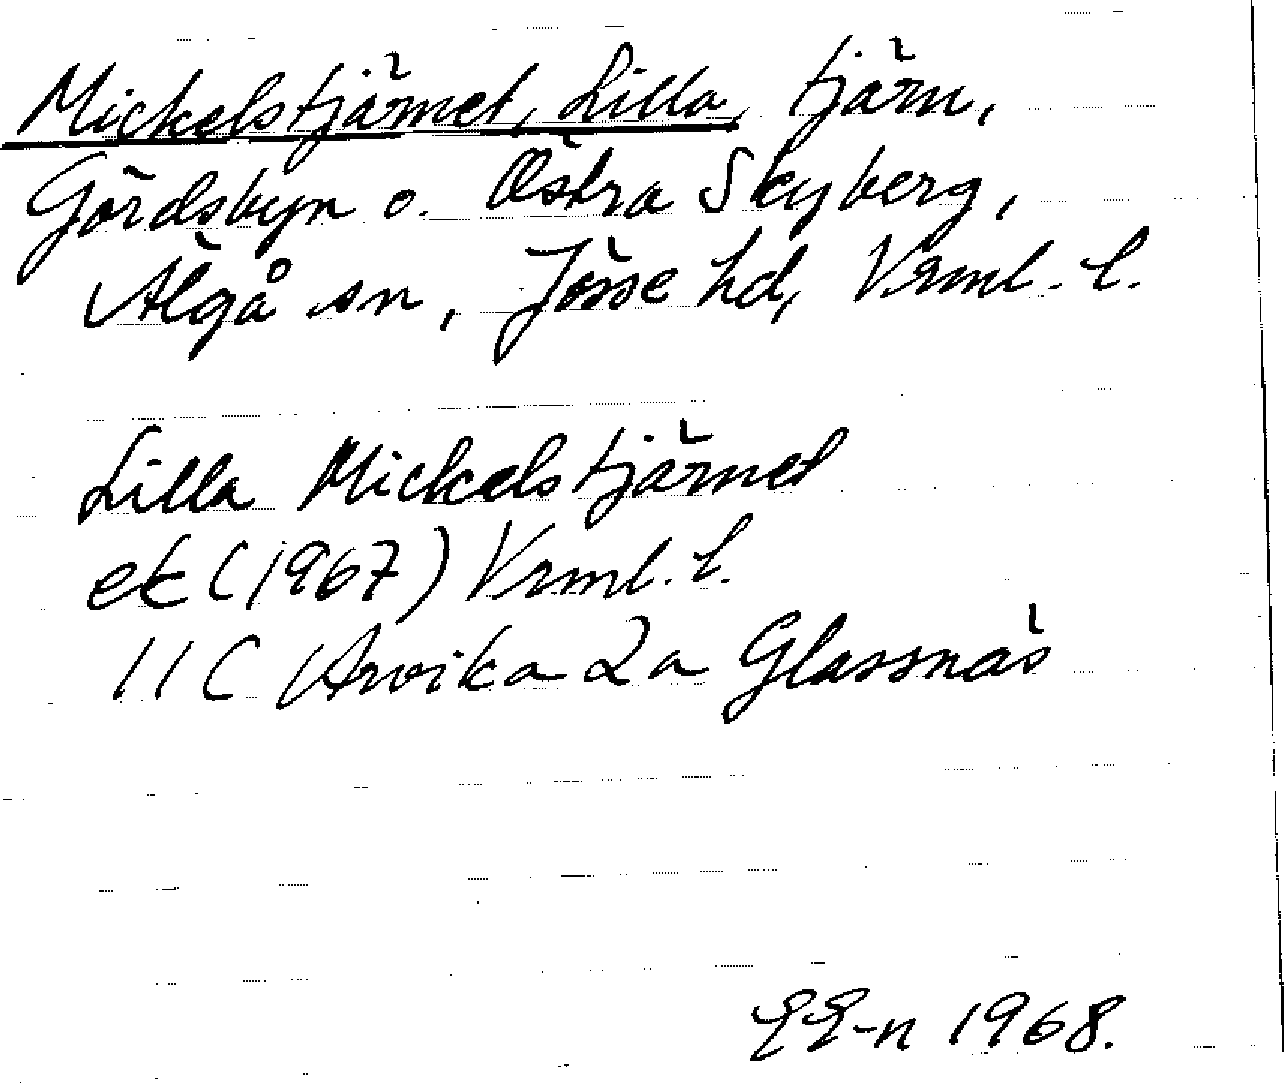 Mickelstjärnet, Lilla, tjärn,
Gördsbyn o. Östra Skyberg,
Älgå sn, Jösse hd, Vrml. l.
Lilla Mickelstjärnet
ek (1967) Vrml. l.
11 C Arvika 2a Glassnäs
EE-n 1968.